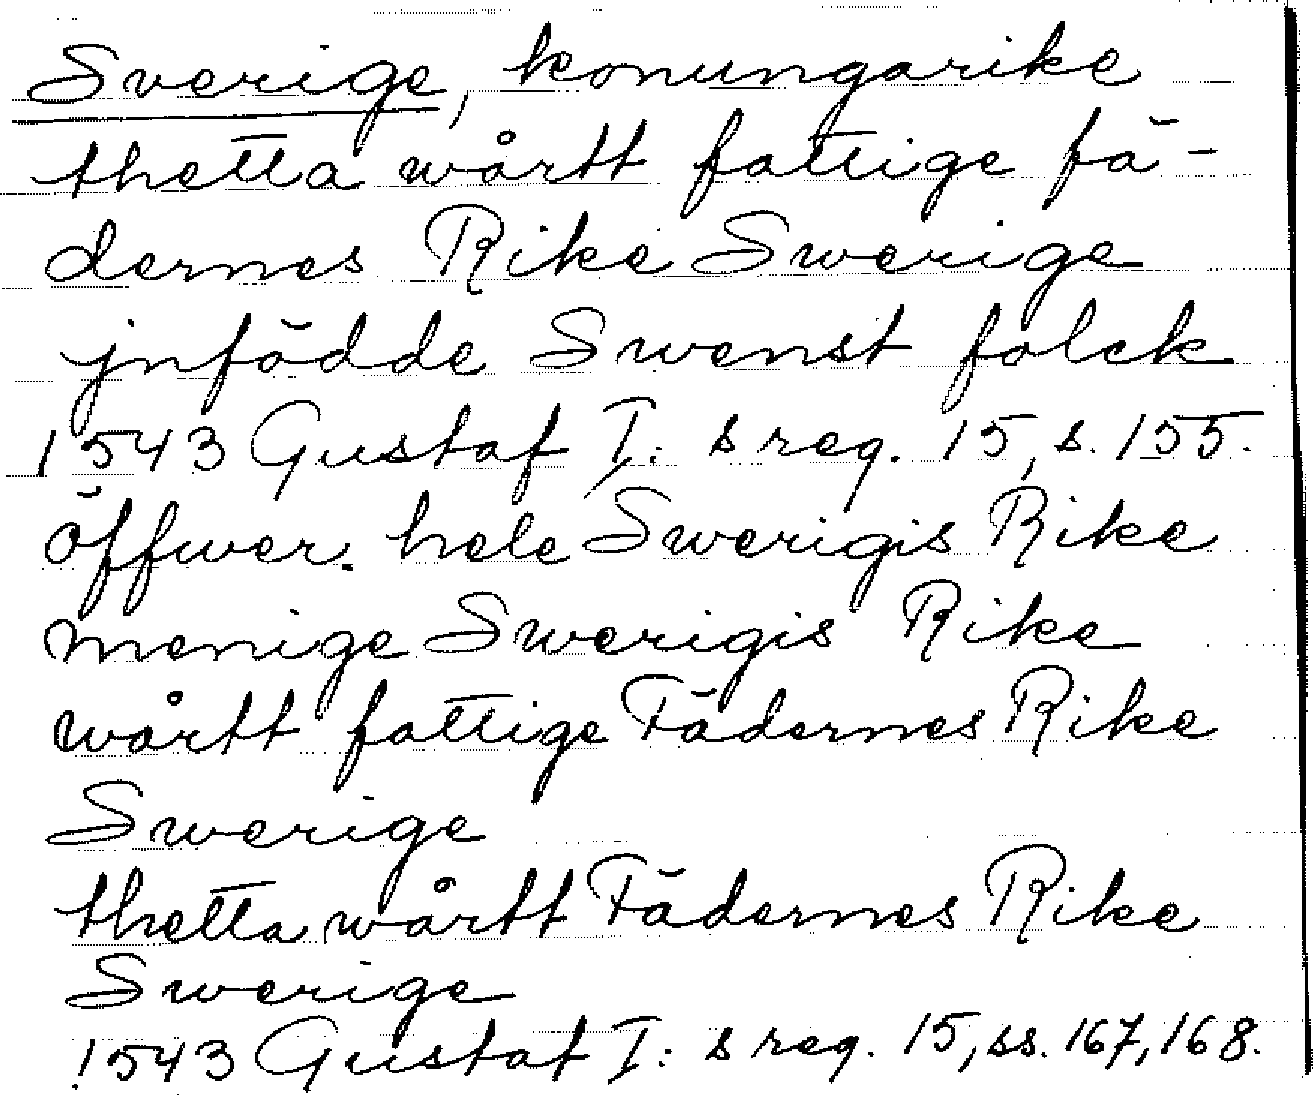 Sverige, konungarike
thetta wårtt fattige fä-
dernes Rike Swerige
jnfödde Swenst folck
1543 Gustaf I: s reg. 15, s. 155.
öffwer hele Swerigis Rike
menige Swerigis Rike
wårtt fattige Fädernes Rike
Swerige
thetta wårtt Fädernes Rike
Swerige
1543 Gustaf I: s reg. 15, ss. 167, 168.